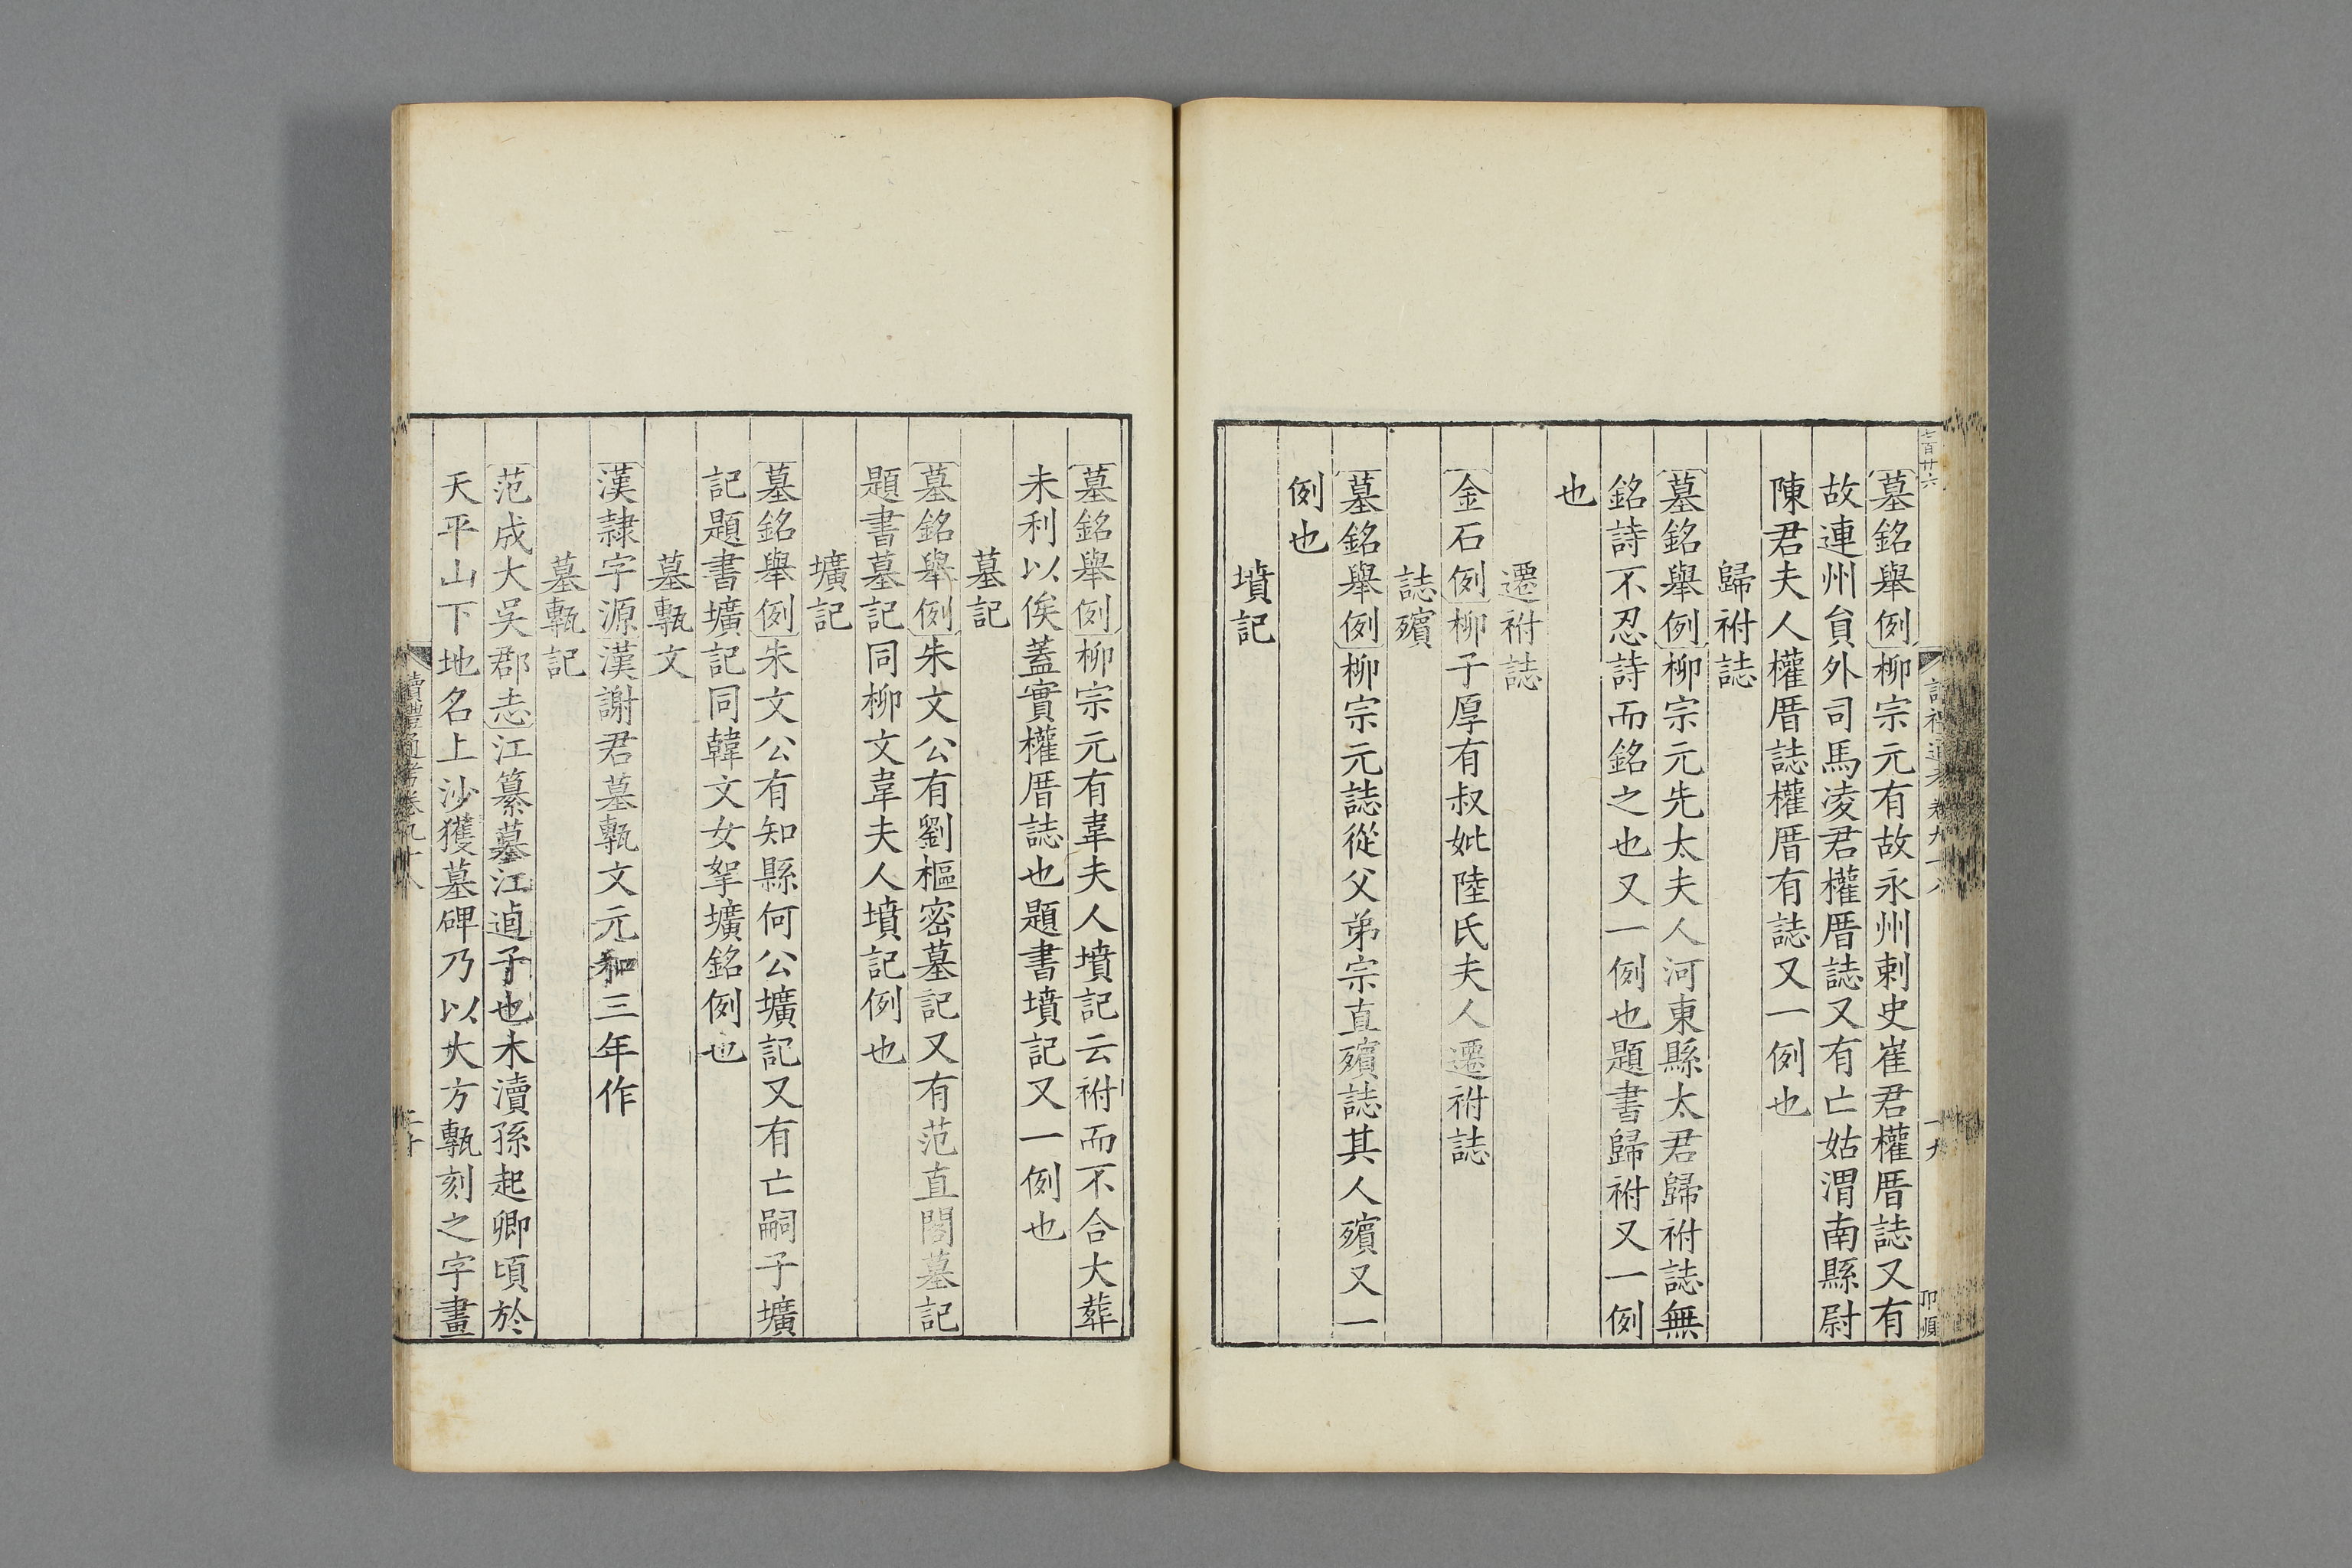 墓銘舉例柳宗元有故永州刺史崔君權厝誌又有
故連州員外司馬凌君權厝誌又有亡姑渭南縣尉
陳君夫人權厝誌權厝有誌又一例也
歸祔誌
墓銘舉例柳宗元先太夫人河東縣太君歸祔誌無
銘詩不忍詩而銘之也又一例也題書歸祔又一例
也
遷祔誌
金石例柳子厚有叔妣陸氏夫人遷祔誌
誌殯
墓銘舉例柳宗元誌從父弟宗直殯誌其人殯又一
例也
墳記
墓銘舉例柳宗元有韋夫人墳記云祔而不合大葬
未利以俟蓋實權厝誌也題書墳記又一例也
墓記
墓銘舉例朱文公有劉樞密墓記又有范直閣墓記
題書墓記同柳文韋夫人墳記例也
壙記
墓銘舉例朱文公有知縣何公壙記又有亡嗣子壙
記題書壙記同韓文女挐壙銘例也
墓甎文
漢隸字源漢謝君墓甎文元和三年作
墓甎記
范成大吳郡志江纂墓江逌子也木瀆孫起卿頃於
天平山下地名上沙獲墓碑乃以大方甎刻之字畫
讀禮通考卷九十八
二十